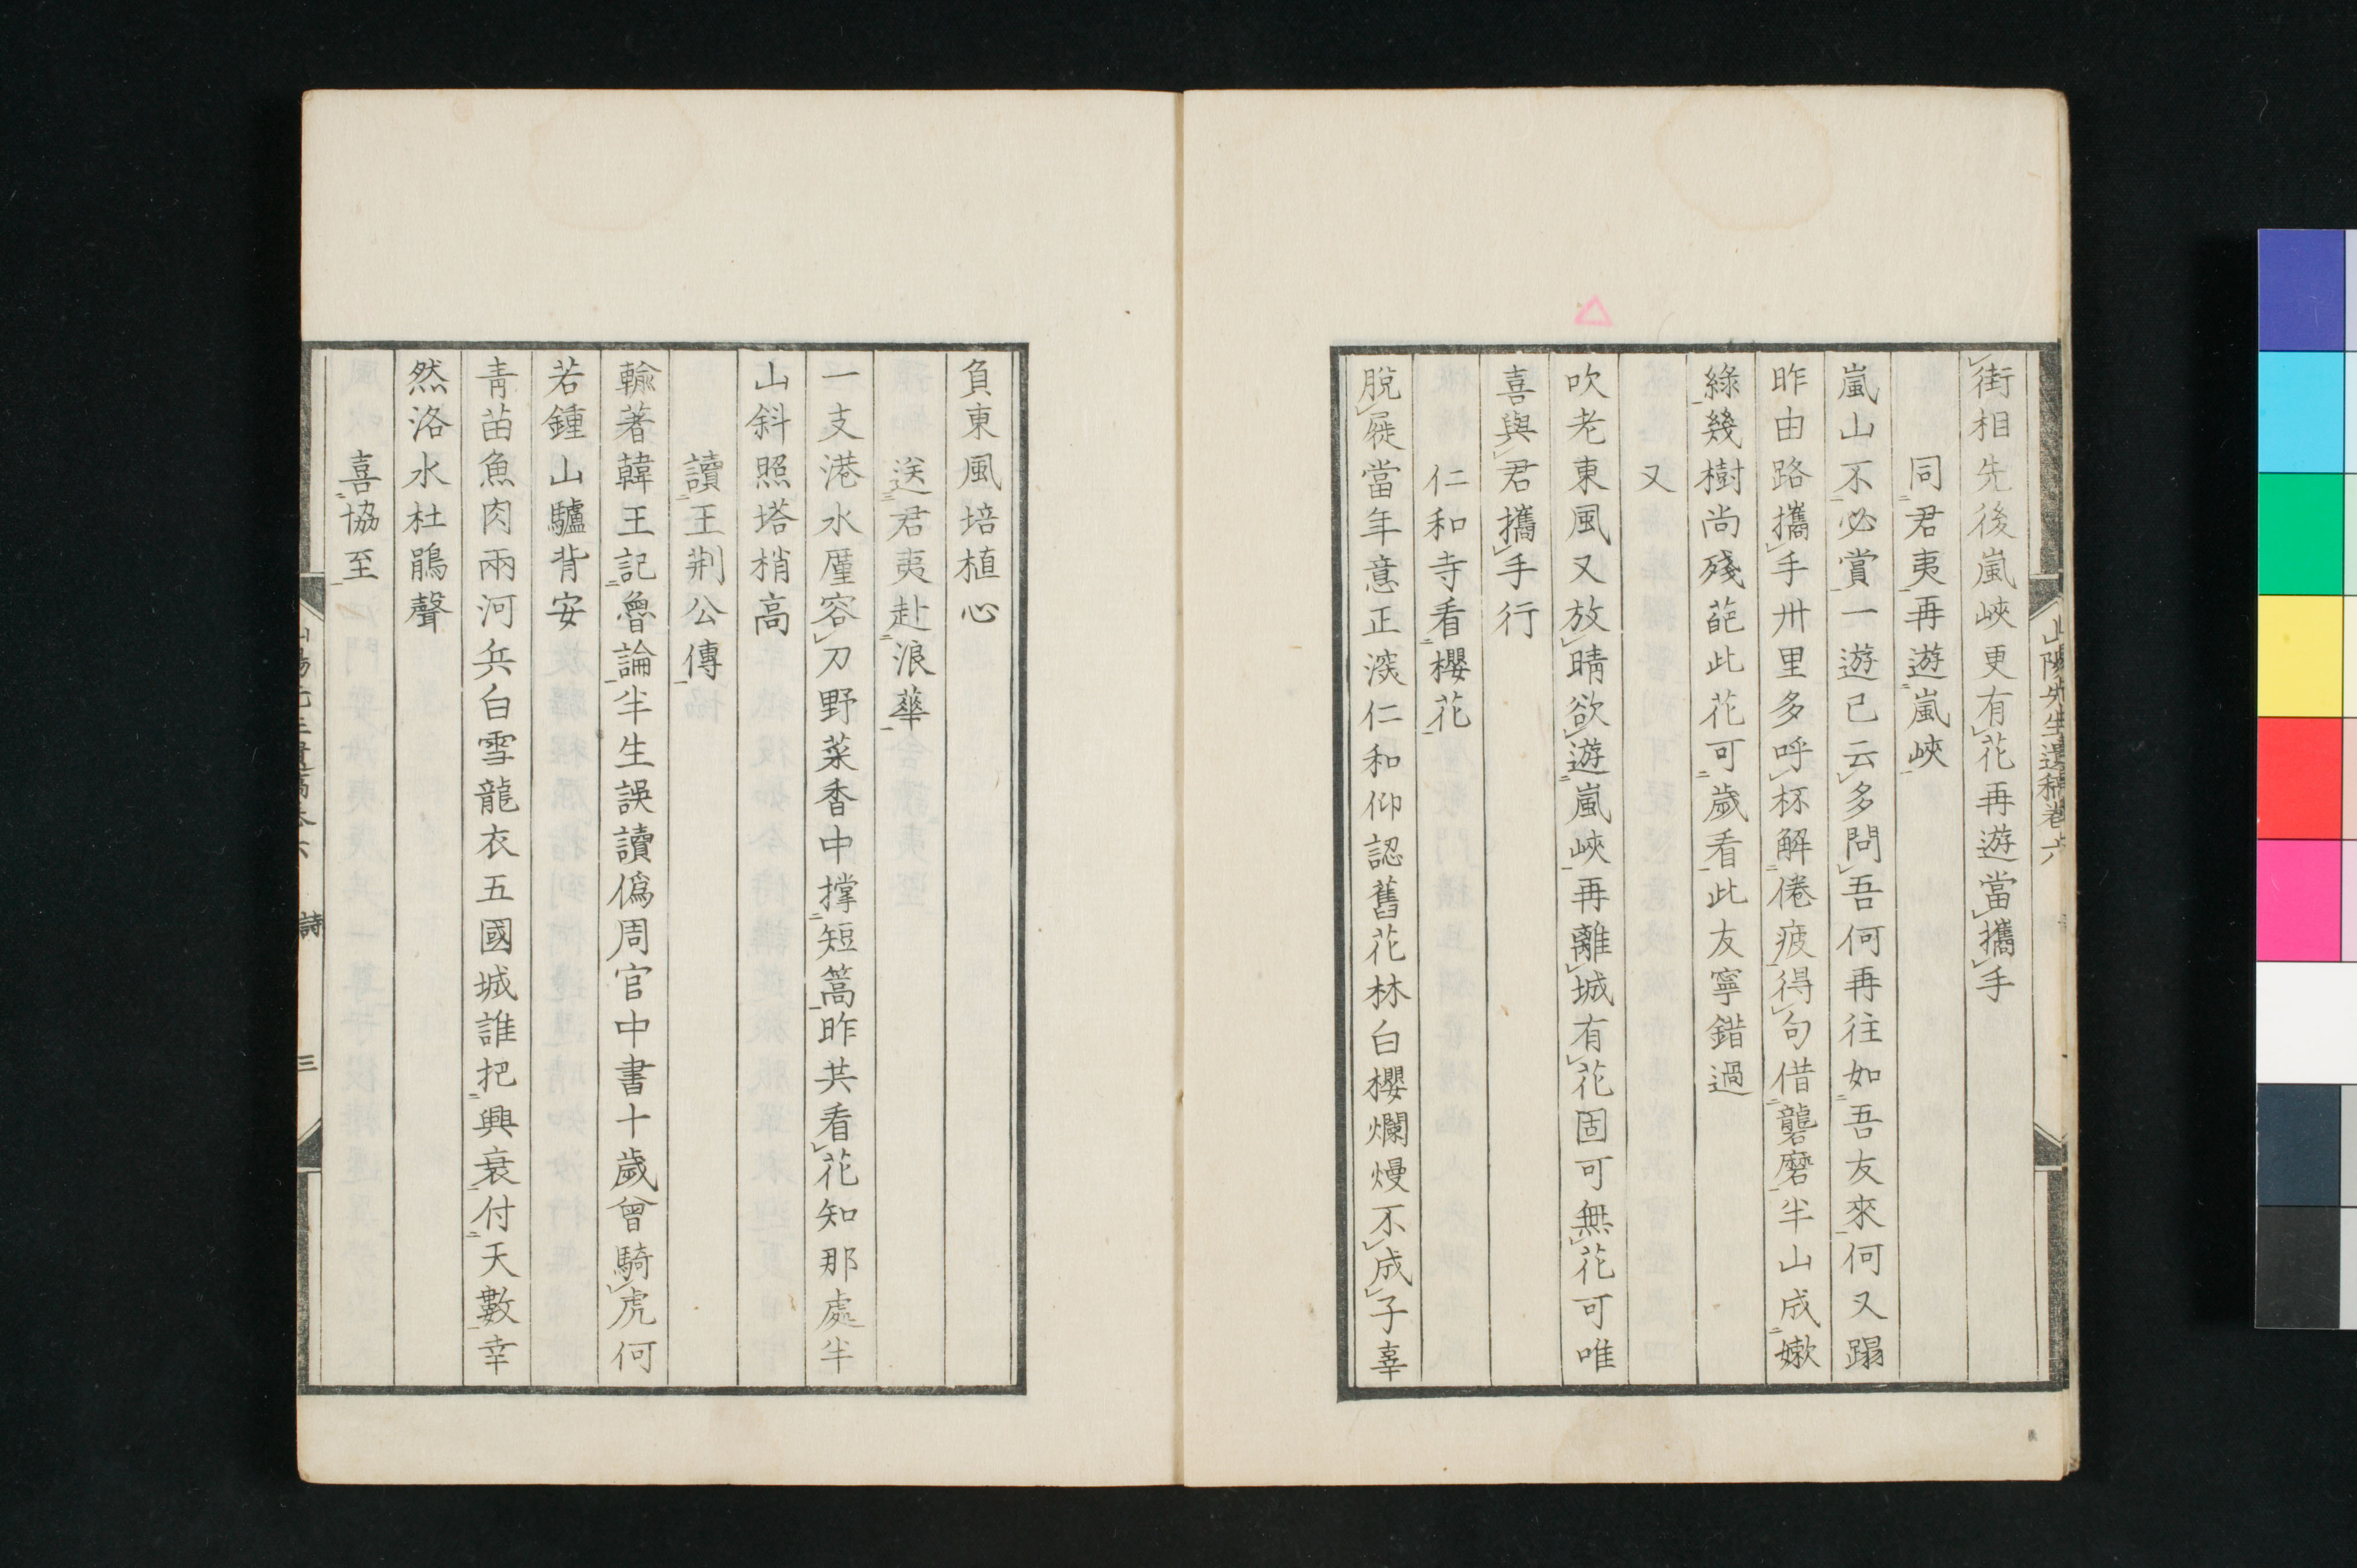 山陽先生遺稿卷六
街相先後嵐峽更有花再遊當攜手
同君夷再遊嵐峽
嵐山不必賞一遊已云多問吾何再往如吾友來何又蹋
昨由路攜手卅里多呼杯解倦疲得句借礱磨半山成嫩
綠幾樹尚殘葩此花可歲看此友寧錯過
又
吹老東風又放晴欲遊嵐峽再離城有花固可無花可唯
喜與君攜手行
仁和寺看櫻花
脫屣當年意正深仁和仰認舊花林白櫻爛熳不成子辜
負東風培植心
送君夷赴浪華
一支港水廑容刀野菜香中撑短篙昨共看花知那處半
山斜照塔梢高
讀王荆公傳
輸著韓王記魯論半生誤讀僞周官中書十歲曾騎虎何
若鍾山驢背安
靑苗魚肉兩河兵白雪龍衣五國城誰把興衰付天數幸
然洛水杜鵑聲
喜協至
詩
三